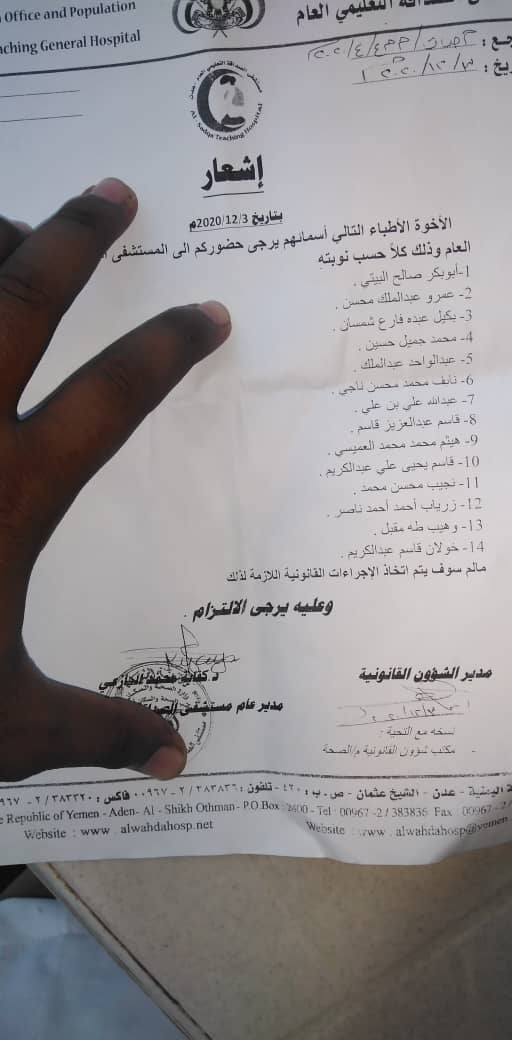 Office and Population
ching General Hospital
التعليمي العام
مستشفى الصداقة التعليمي العام - عدن
Al-Sadqa Teaching Hospital
إشعار
بتاريخ 2020/12/3م
الأخوة الأطباء التالي أسمائهم يرجى حضوركم الى المستشفى
العام وذلك كلاً حسب نوبته
1-أبوبكر صالح البيتي .
2- عمرو عبدالملك محسن .
3- بكيل عبده فارع شمسان .
4- محمد جميل حسين .
5- عبدالواحد عبدالملك .
6- نائف محمد محسن ناجي .
7- عبدالله علي بن علي .
8- قاسم عبدالعزيز قاسم .
9- هيثم محمد محمد العميسي .
10- قاسم يحيى علي عبدالكريم .
11- نجيب محسن محمد .
12- زرياب أحمد أحمد ناصر .
13- وهيب طه مقبل .
14- خولان قاسم عبدالكريم .
مالم سوف يتم اتخاذ الإجراءات القانونية اللازمة لذلك
وعليه يرجى الالتزام .
مدير الشؤون القانونية
د.كفاية محمد الجازمي
مدير عام مستشفى
نسخه مع التحية :
- مكتب شؤون القانونية م/الصحة
اليمنية - عدن - الشيخ عثمان - ص . ب : ٢٤٠٠ - تلفون : ٣٨٣٨٣٦ / ٢ - ٠٠٩٦٧ فاكس : ٣٨٣٣٢٠ / ٢ -
Republic of Yemen - Aden- Al - Shikh Othman - P.O.Box : 2400 - Tel : 00967 -2 / 383836 Fax : 00967 - 2 /
Website : www . alwahdahosp.net
Website : www . alwahdahosp@yemen